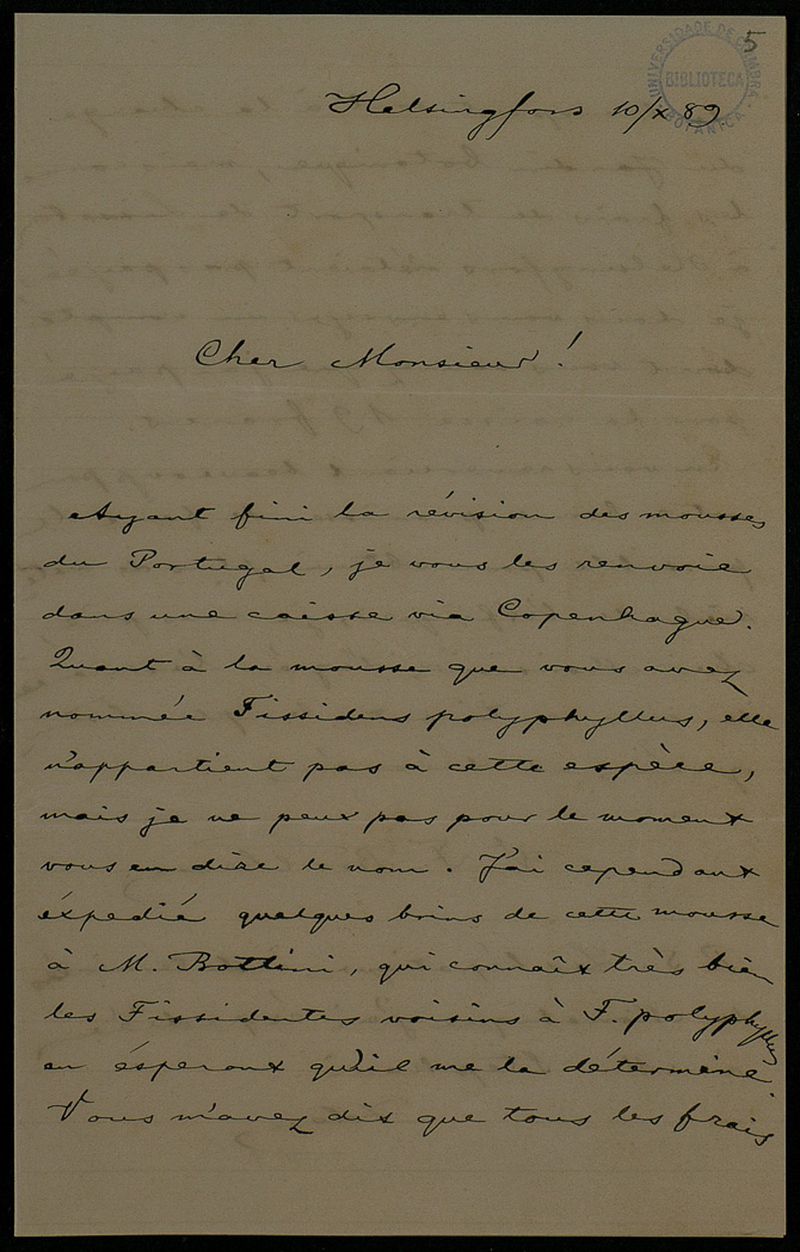 5
UNIVERSIDADE DE COIMBRA
BIBLIOTECA
BOTANICA
Helsingfors 10/X 89
Cher Monsieur!
Ayant fini la révision des mousses
du Portugal, je vous les renvoie
dans une caisse via Copenhague.
Quant à la mousse que vous avez
nommée Fissidens polyphyllus, elle
n'appartient pas à cette espèce,
mais je ne peux pas pour le moment
vous en dire le nom. J'ai cependant
éxpedié quelques brins de cette mousse
à M. Bottini, qui connaît très bien
les Fissidentes voisins à F. polyphyllus
en ésperant qu'il me la détermine.
Vous m'avez dit que tous les frais